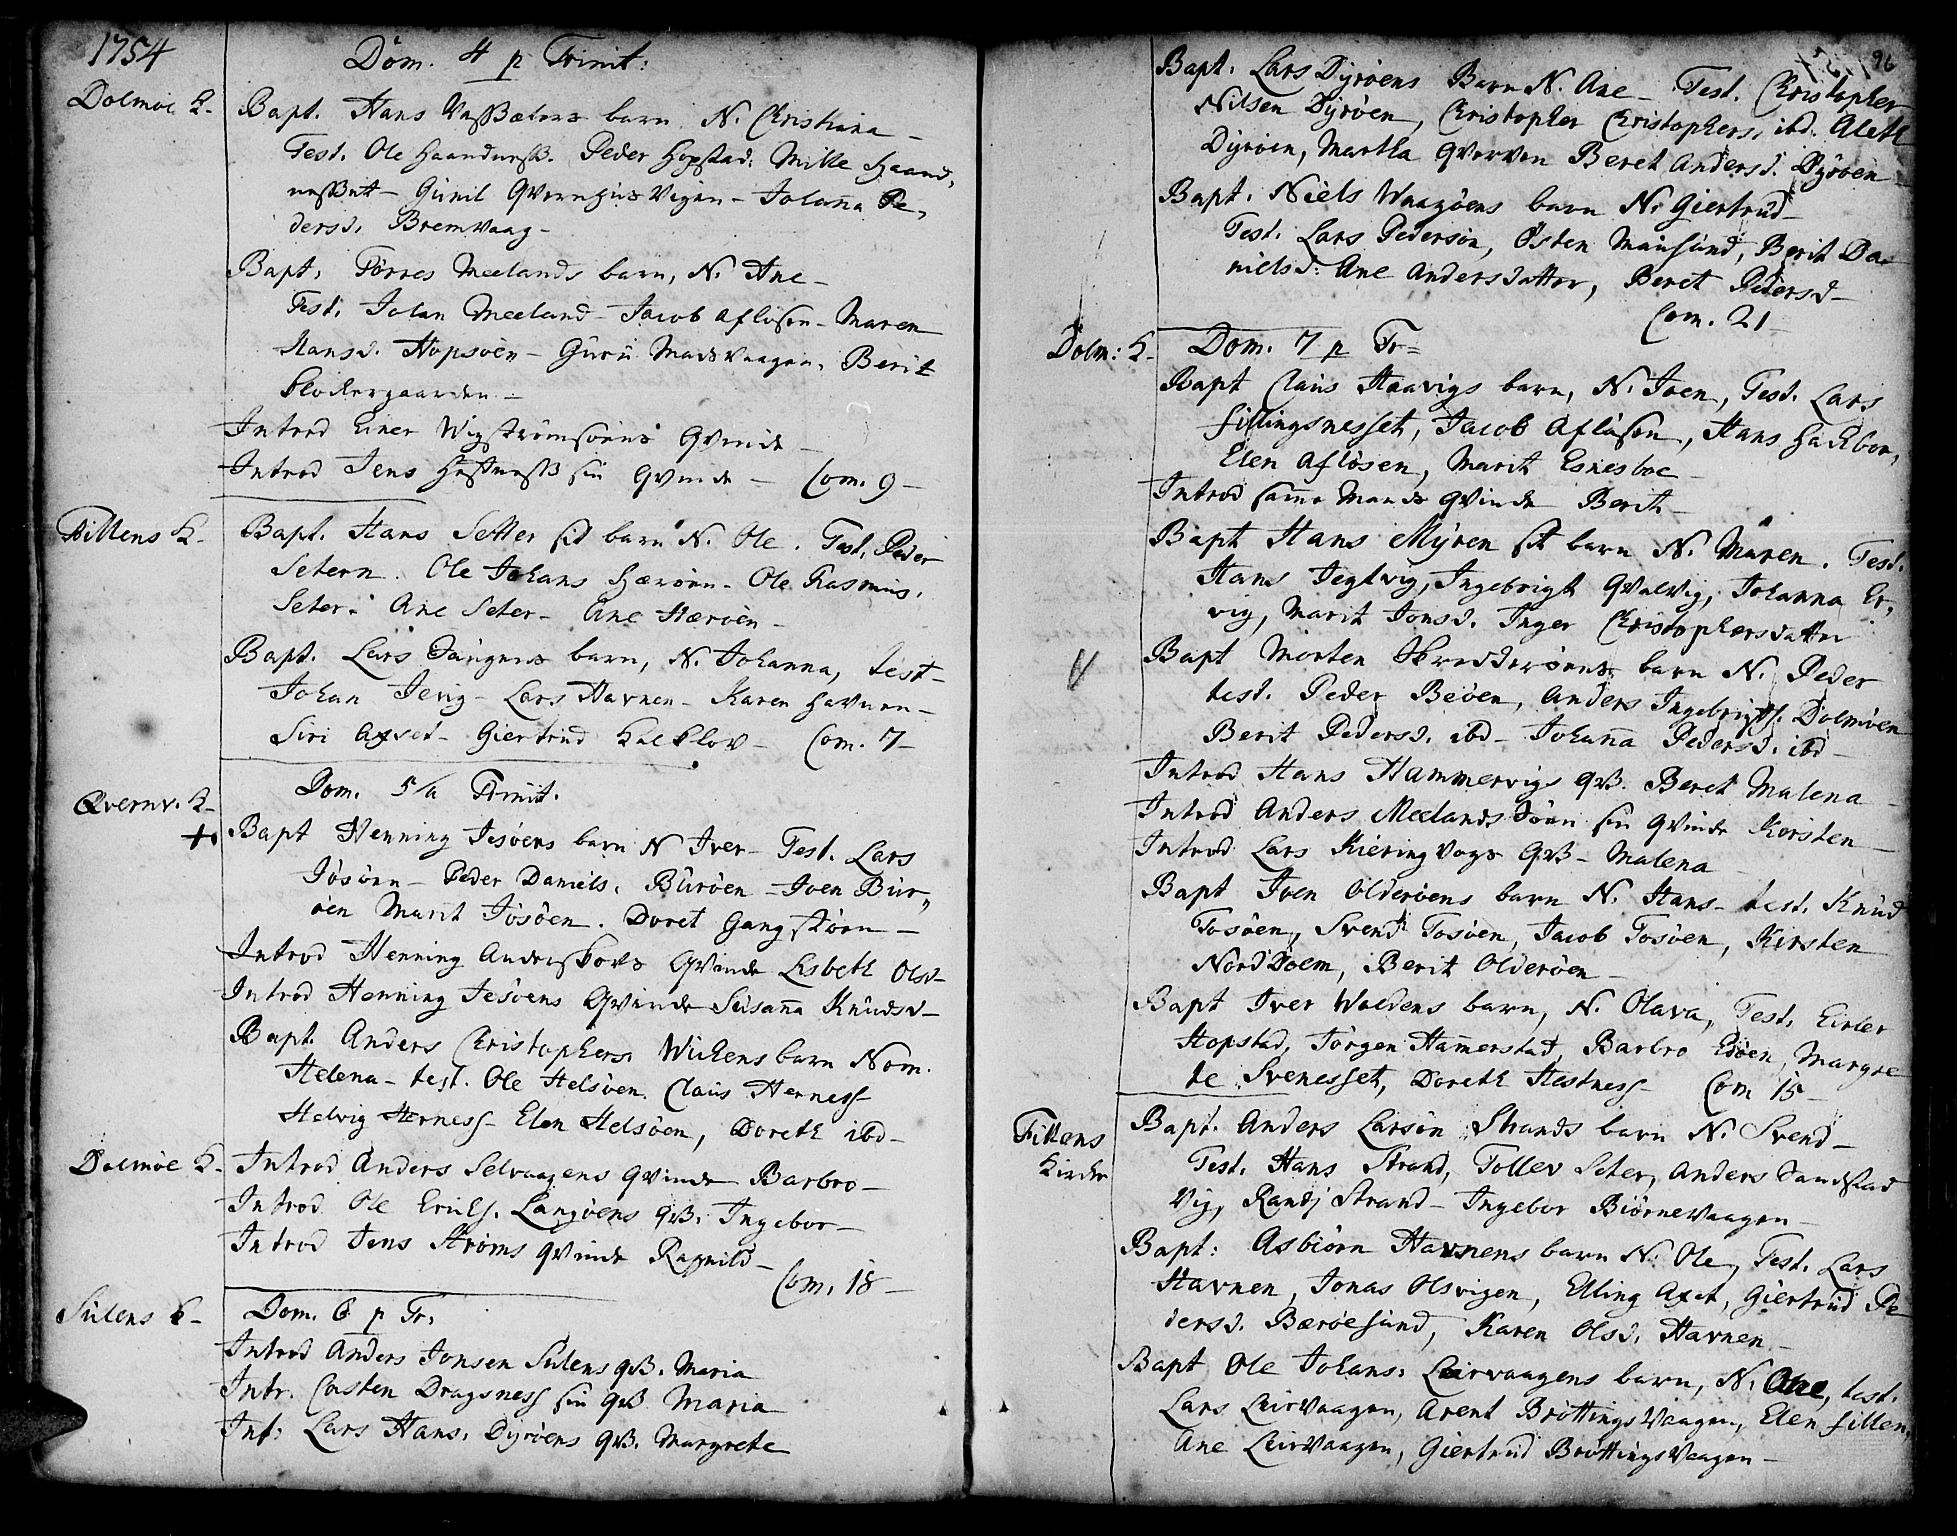 1754
Dom. 4 p Trinit:
Dolmøe K.
Bapt. Hans Vassæters barn N. Christiana –
Test. Ole Haandness. Peder Hopstad. Mille Haand,
nessett – Gunil Qvernhus Vigen – Johanna Pe,
dersd. Bremvaag –
Bapt. Tørres Meelands barn, N. Ane –
Test. Johan Meeland – Jacob Afløsen – Maren
Hansd. Hopsøen – Guru Madsvaagen, Berit
Klockergaarden –
Introd Einer Wigstrømsøens Qvinde –
Introd Jens Hestness sin Qvinde – Com. 9 –
Fillens K.
Bapt. Hans Setter sit barn N. Ole. Test. Peder
Setern. Ole Johans Hærøen – Ole Rasmus.
Seter. Ane Seter – Ane Hærøen –
Bapt. Lars Tangens barn, N. Johanna, test –
Johan Jevig – Lars Havnen – Karen Havnen –
Siri Axset – Giertrud Kalklov – Com. 7 –
Dom. 5 a Trinit.
Qvernv. K.
+. Bapt Henning Jesøens barn N Iver – Test. Lars
Jøsøen – Peder Daniels. Burøen – Joen Bur,
øen Marit Jøsøen. Doret Gangstøen –
Introd Henning Anderskovs Qvinde Lisbeth Olsd –
Introd Henning Jesøens Qvinde Susanna Knudsd –
Bapt. Anders Christophers. Wikens barn Nom.
Helena – test. Ole Helsøen. Claus Herness
Helvig Herness – Elen Helsøen, Doreth ibd –
Dolmøe K.
Introd Anders Selvaagens Qvinde Barbro –
Introd Ole Erichs. Langøens qv. Ingebor –
Introd Jens Strøms Qvinde Ragnild –
Com. 18 –
Sulens K.
Dom. 6 p Tr.
Introd Anders Jonsen Sulens qv. Maria
Intr. Casten Dragsness sin qv. Maria
Int: Lars Hans. Dyrøens qv. Margrete
96
Bapt. Lars Dyrøens Barn N. Ane – Test. Christopher
Nilsen Dyrøen, Christopher Christophers. ibd. Aleth
Dyrøen, Martha Qverven Beret Andersd. Dyrøen –
Bapt. Niels Waagøens barn N. Giertrud –
Test. Lars Pedersøn, Østen Mausund, Berit Da
nielsd: Ane Andersdatter, Beret Pedersd –
Com. 21
Dolm: K.
Dom. 7 p Tr =
Bapt Claus Haavigs barn, N. Joen, Test. Lars
Fillingsnesset, Jacob Afløsen, Hans Hackbon,
Elen Afløsen, Marit Esnesboe –
Introd samme Mands Qvinde Berit –
Bapt Hans Myren sit barn N. Maren. Test.
Hans Jegtvig, Ingebrigt Qvalvig, Johanna Er,
vig, Marit Jonsd. Inger Christophersdatter
Bapt Morten Skredderøens barn N. Peder
test. Peder Beøen, Anders Ingebrigts. Dolmøen
Berit Pedersd. ibd – Johanna Pedersd. ibd –
Introd Hans Hammervigs qv. Beret Malena –
Introd Anders Meelandsøen sin Qvinde Kersten –
Introd Lars Kieringvogs qv – Malena
Bapt Joen Olderøens barn N. Hans – test. Knud
Tosøen, Svend Tosøen, Jacob Tosøen, Kirsten
Norddoem, Berit Olderøen –
Bapt Iver Waldens barn, N. Olava, Test. Eiler
Hopstad, Jørgen Hammerstad, Barbro Edøen, Margre
te Svenesset, Doreth Hestness – Com 15 –
Fillens
Kirche
Bapt. Anders Larsøn Strands barn N. Svend –
Test. Hans Strand, Tollev Seter, Anders Sandstad
Vig, Randj Strand – Ingebor Biørnevaagen –
Bapt: Asbiørn Havnens barn N. Ole, Test. Lars
Havnen, Jonas Olsvigen, Elling Axet, Giertrud Pe
dersd. Barøesund, Karen Olsd. Havnen –
Bapt Ole Johans: Leirvaagens barn, N. Ane, test.
Lars Leirvaagen, Arent Brøttingsvaagen, Elen Fillen,
Ane Leirvaagen, Giertrud Brøttingsvaagen –